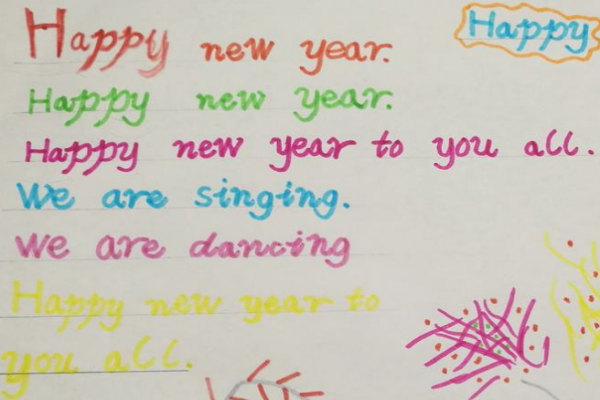 Happy
Happy new year.
Happy new year.
Happy new year to you all.
We are singing.
We are dancing
Happy new year to
you all.